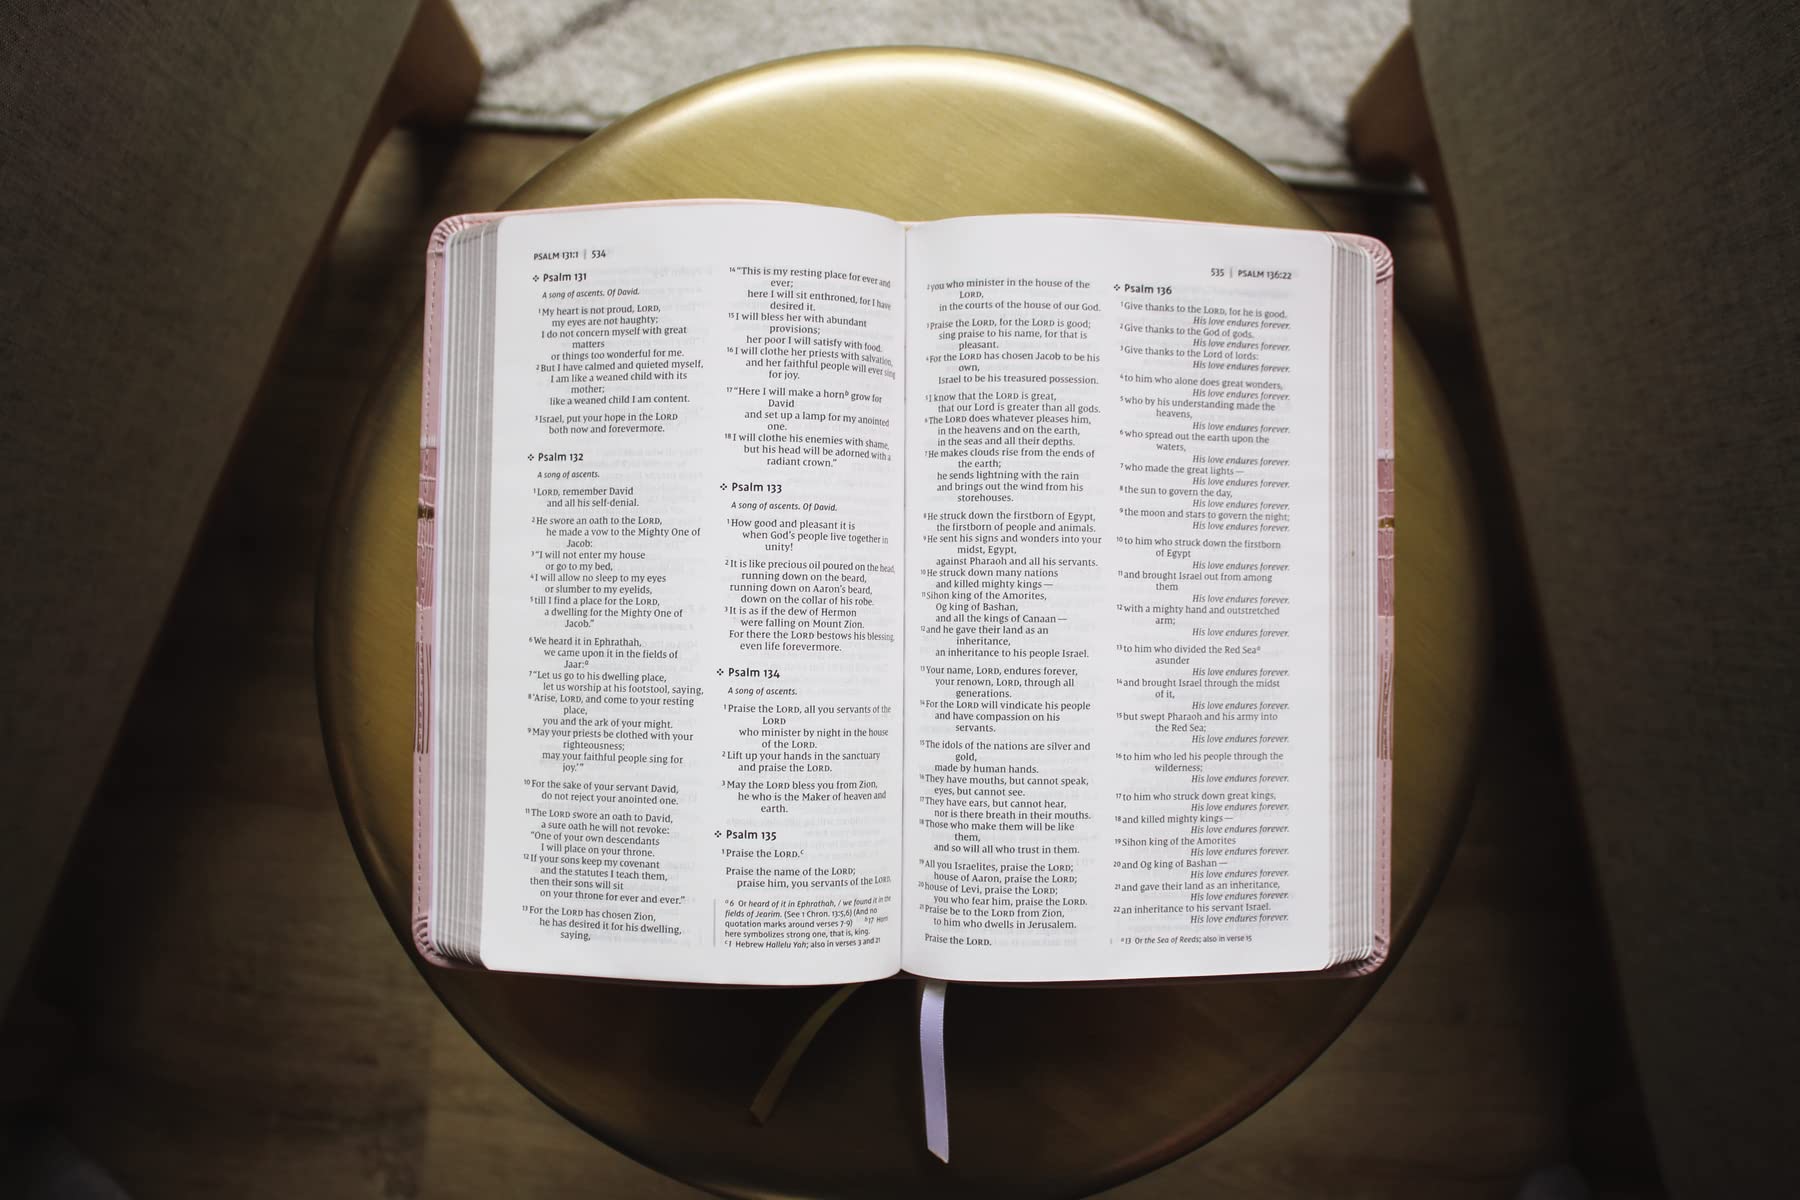 PSALM 131:1 | 534
Psalm 131
A song of ascents. Of David.
1 My heart is not proud, LORD,
my eyes are not haughty;
I do not concern myself with great
matters
or things too wonderful for me.
2 But I have calmed and quieted myself,
I am like a weaned child with its
mother;
like a weaned child I am content.
3 Israel, put your hope in the LORD
both now and forevermore.
Psalm 132
A song of ascents.
1 LORD, remember David
and all his self-denial.
2 He swore an oath to the LORD,
he made a vow to the Mighty One of
Jacob:
3 "I will not enter my house
or go to my bed,
4 I will allow no sleep to my eyes
or slumber to my eyelids,
5 till I find a place for the LORD,
a dwelling for the Mighty One of
Jacob."
6 We heard it in Ephrathah,
we came upon it in the fields of
Jaar:a
7 "Let us go to his dwelling place,
let us worship at his footstool, saying,
8 'Arise, LORD, and come to your resting
place,
you and the ark of your might.
9 May your priests be clothed with your
righteousness;
may your faithful people sing for
joy.'"
10 For the sake of your servant David,
do not reject your anointed one.
11 The LORD swore an oath to David,
a sure oath he will not revoke:
"One of your own descendants
I will place on your throne.
12 If your sons keep my covenant
and the statutes I teach them,
then their sons will sit
on your throne for ever and ever."
13 For the LORD has chosen Zion,
he has desired it for his dwelling,
saying,
14 "This is my resting place for ever and
ever;
here I will sit enthroned, for I have
desired it.
15 I will bless her with abundant
provisions;
her poor I will satisfy with food.
16 I will clothe her priests with salvation,
and her faithful people will ever sing
for joy.
17 "Here I will make a hornb grow for
David
and set up a lamp for my anointed
one.
18 I will clothe his enemies with shame,
but his head will be adorned with a
radiant crown."
Psalm 133
A song of ascents. Of David.
1 How good and pleasant it is
when God's people live together in
unity!
2 It is like precious oil poured on the head,
running down on the beard,
running down on Aaron's beard,
down on the collar of his robe.
3 It is as if the dew of Hermon
were falling on Mount Zion.
For there the LORD bestows his blessing,
even life forevermore.
Psalm 134
A song of ascents.
1 Praise the LORD, all you servants of the
LORD
who minister by night in the house
of the LORD.
2 Lift up your hands in the sanctuary
and praise the LORD.
3 May the LORD bless you from Zion,
he who is the Maker of heaven and
earth.
Psalm 135
1 Praise the LORD.c
Praise the name of the LORD;
praise him, you servants of the LORD,
a 6 Or heard of it in Ephrathah, / we found it in the
fields of Jearim. (See 1 Chron. 13:5,6) (And no
quotation marks around verses 7-9) b 17 Horn
here symbolizes strong one, that is, king.
c 1 Hebrew Hallelu Yah; also in verses 3 and 21
535 | PSALM 136:22
2 you who minister in the house of the
LORD,
in the courts of the house of our God.
3 Praise the LORD, for the LORD is good;
sing praise to his name, for that is
pleasant.
4 For the LORD has chosen Jacob to be his
own,
Israel to be his treasured possession.
5 I know that the LORD is great,
that our Lord is greater than all gods.
6 The LORD does whatever pleases him,
in the heavens and on the earth,
in the seas and all their depths.
7 He makes clouds rise from the ends of
the earth;
he sends lightning with the rain
and brings out the wind from his
storehouses.
8 He struck down the firstborn of Egypt,
the firstborn of people and animals.
9 He sent his signs and wonders into your
midst, Egypt,
against Pharaoh and all his servants.
10 He struck down many nations
and killed mighty kings—
11 Sihon king of the Amorites,
Og king of Bashan,
and all the kings of Canaan—
12 and he gave their land as an
inheritance,
an inheritance to his people Israel.
13 Your name, LORD, endures forever,
your renown, LORD, through all
generations.
14 For the LORD will vindicate his people
and have compassion on his
servants.
15 The idols of the nations are silver and
gold,
made by human hands.
16 They have mouths, but cannot speak,
eyes, but cannot see.
17 They have ears, but cannot hear,
nor is there breath in their mouths.
18 Those who make them will be like
them,
and so will all who trust in them.
19 All you Israelites, praise the LORD;
house of Aaron, praise the LORD;
20 house of Levi, praise the LORD;
you who fear him, praise the LORD.
21 Praise be to the LORD from Zion,
to him who dwells in Jerusalem.
Praise the LORD.
Psalm 136
1 Give thanks to the LORD, for he is good.
His love endures forever.
2 Give thanks to the God of gods.
His love endures forever.
3 Give thanks to the Lord of lords:
His love endures forever.
4 to him who alone does great wonders,
His love endures forever.
5 who by his understanding made the
heavens,
His love endures forever.
6 who spread out the earth upon the
waters,
His love endures forever.
7 who made the great lights—
His love endures forever.
8 the sun to govern the day,
His love endures forever.
9 the moon and stars to govern the night;
His love endures forever.
10 to him who struck down the firstborn
of Egypt
His love endures forever.
11 and brought Israel out from among
them
His love endures forever.
12 with a mighty hand and outstretched
arm;
His love endures forever.
13 to him who divided the Red Seaa
asunder
His love endures forever.
14 and brought Israel through the midst
of it,
His love endures forever.
15 but swept Pharaoh and his army into
the Red Sea;
His love endures forever.
16 to him who led his people through the
wilderness;
His love endures forever.
17 to him who struck down great kings,
His love endures forever.
18 and killed mighty kings—
His love endures forever.
19 Sihon king of the Amorites
His love endures forever.
20 and Og king of Bashan—
His love endures forever.
21 and gave their land as an inheritance,
His love endures forever.
22 an inheritance to his servant Israel.
His love endures forever.
a 13 Or the Sea of Reeds; also in verse 15